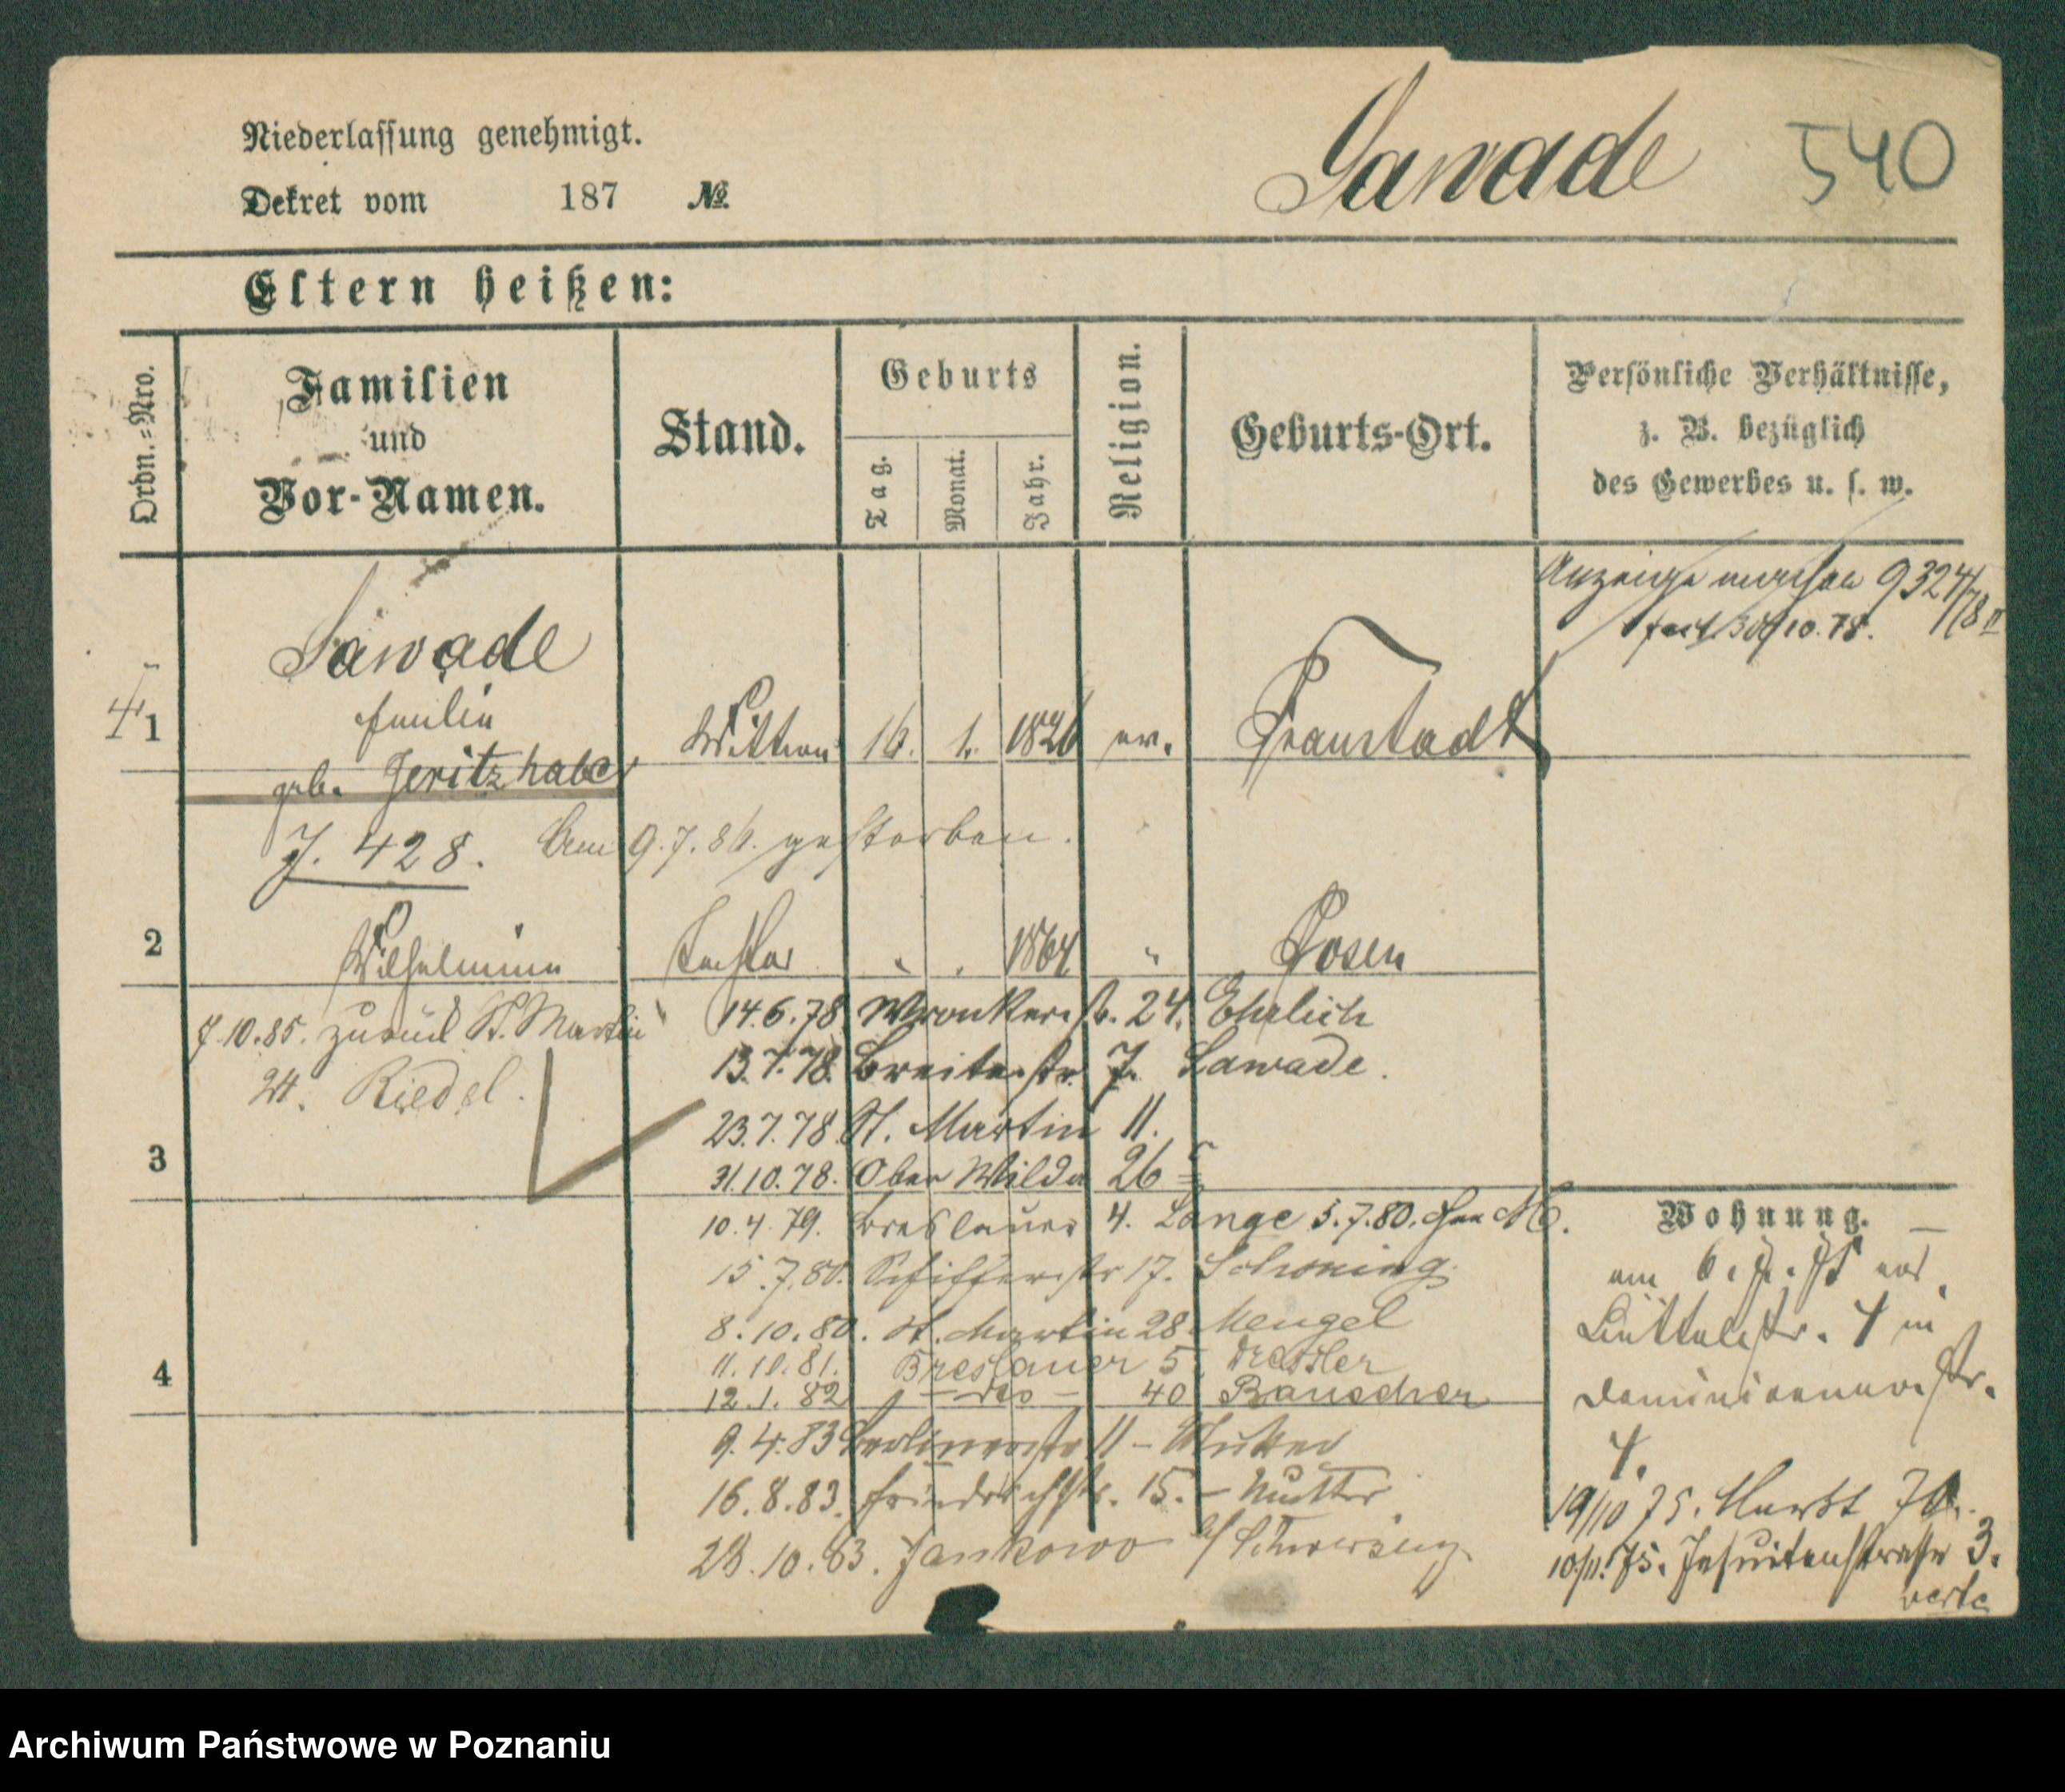 Niederlassung genehmigt.
Dekret vom 187 №
Sawade 540
Eltern heißen:
Ordn.=Nro.
Familien
und
Vor-Namen.
Stand.
Geburts
Tag.
Monat.
Jahr.
Religion.
Geburts-Ort.
Persönliche Verhältnisse,
z. B. bezüglich
des Gewerbes u. s. w.
Anzeige machen 9324/78 II
30/10.78.
1
Sawade
Emilie
geb. Jeritzhaber
Wittwe 16. 1. 1826 ev. Fraustadt
J. 428. Am 9.7.86. gestorben.
2 Wilhelmine Tochter 1864 " Posen
7.10.85. zurück St. Martin
24. Riedel.
14.6.78. Wronkerstr. 24. Ehrlich
13.7.78. Breitestr. 7. Sawade.
23.7.78. St. Martin 11.
3
31.10.78. Ober Wilda 26
10.4.79. Breslauer 4. Lange 5.7.80.
15.7.80. Schifferstr 17. Schoning
8.10.80. St. Martin 28 Mengel
11.10.81. Breslauer 5. Dressler
4
12.1.82 — do — 40 Bauscher
9.4.83 Berlinerstr 11 – Mutter
16.8.83. Friedrichstr. 15. – Mutter
28.10.83. Jankowo b/ Schwersenz
Wohnung.
am
Büttelstr. 4 in
Dominicanerstr.
4.
19/10 75. Markt 70.
10/11.75. Jesuitenstrasse 3.
verte
Archiwum Państwowe w Poznaniu